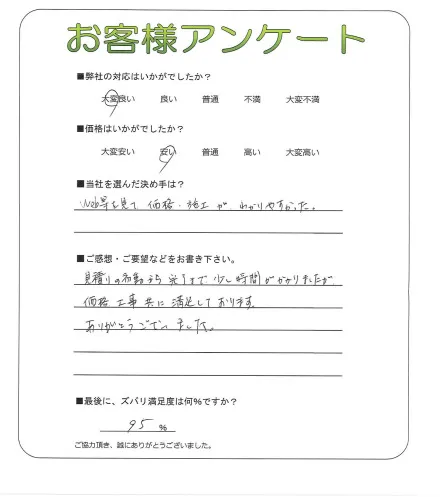 お客様アンケート
■弊社の対応はいかがでしたか？
大変良い 良い 普通 不満 大変不満
■価格はいかがでしたか？
大変安い 安い 普通 高い 大変高い
■当社を選んだ決め手は？
Web等を見て価格・施工がわかりやすかった。
■ご感想・ご要望などをお書き下さい。
見積りの依頼から完了まで少し時間がかかりましたが
価格 工事 共に 満足しております。
ありがとうございました。
■最後に、ズバリ満足度は何％ですか？
95 ％
ご協力頂き、誠にありがとうございました。